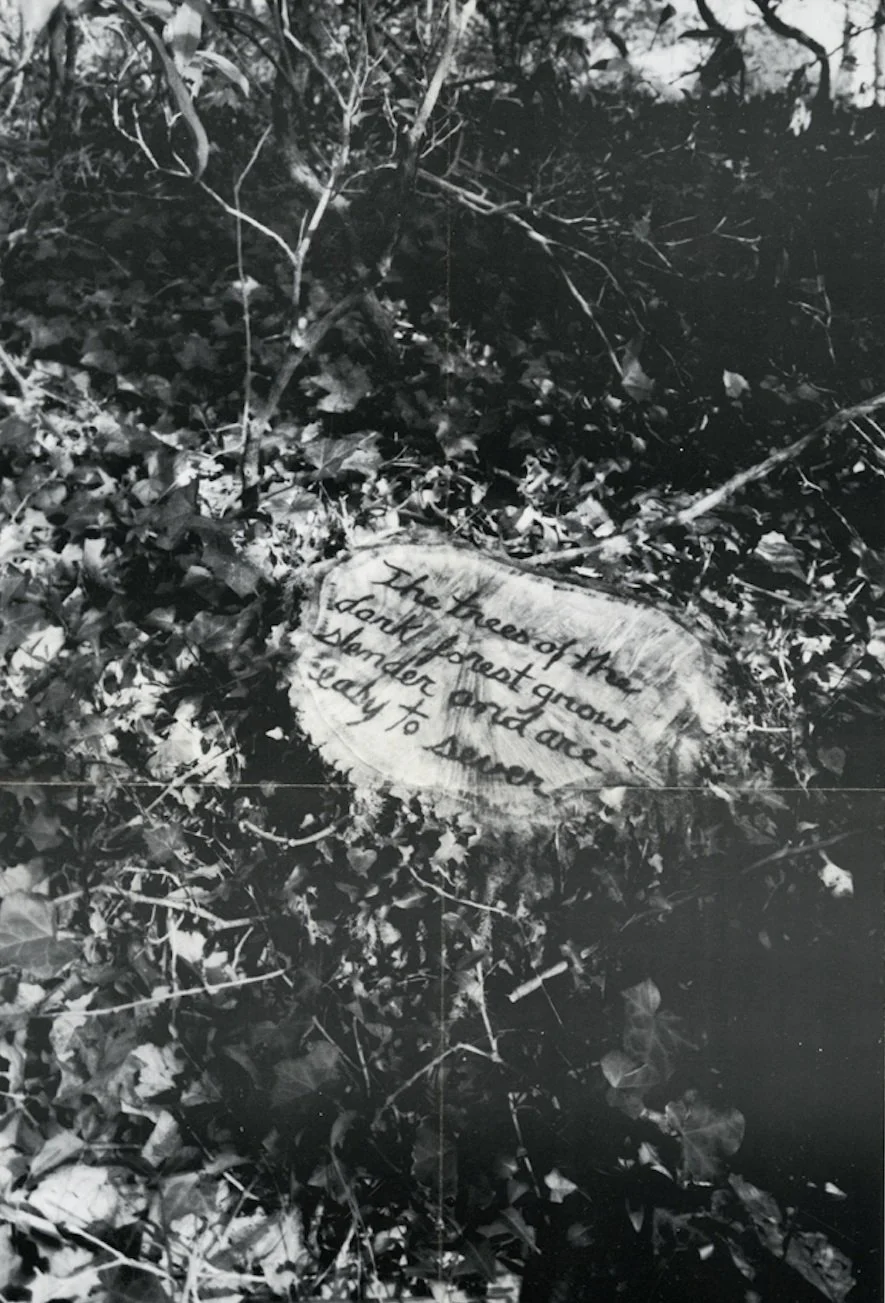 The trees of the
dark forest grow
slender and are
easy to sever